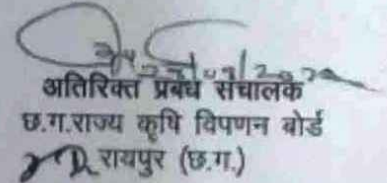 अतिरिक्त प्रबंध संचालक
छ.ग.राज्य कृषि विपणन बोर्ड
रायपुर (छ.ग.)